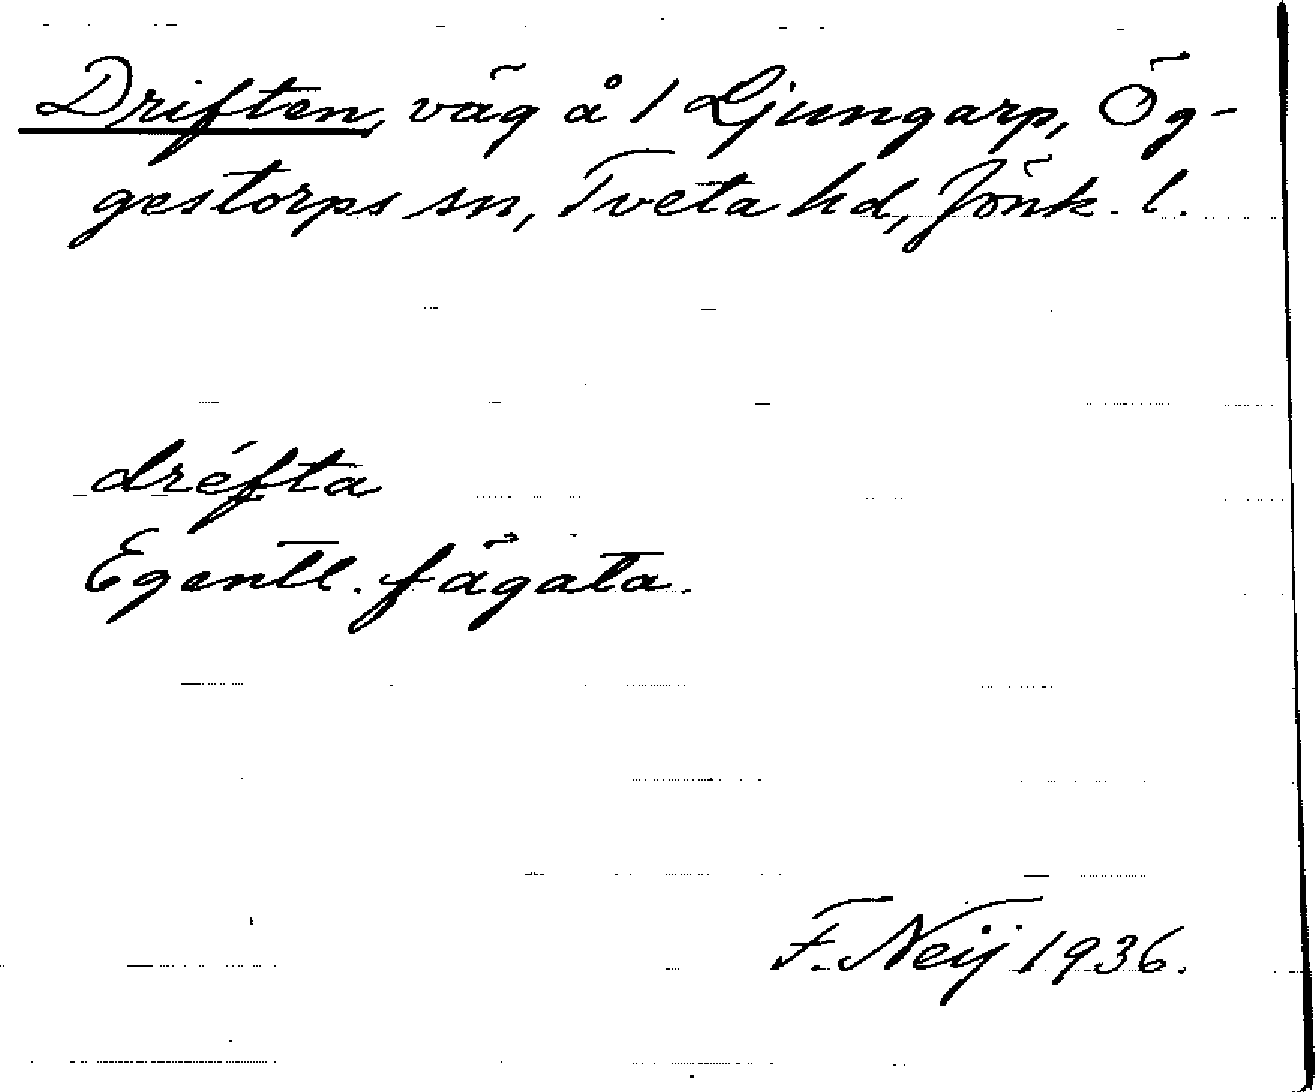 Driften, väg å 1 Ljungarp, Ög-
gestorps sn, Tveta hd, Jönk. l.
dréfta
Egentl. fägata.
F. Neij 1936.